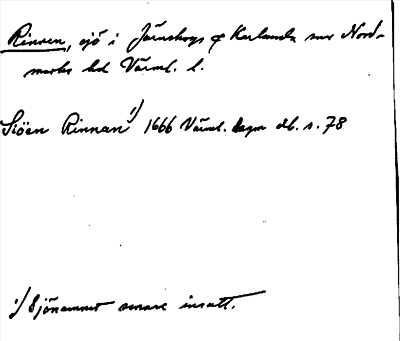 Rinnen, sjö i Järnskogs o Karlanda snr Nord-
marks hd Värml. l.
Siöen Rinnan 1) 1666 Värml. lagm db. s. 78
1) Sjönamnet senare insatt.